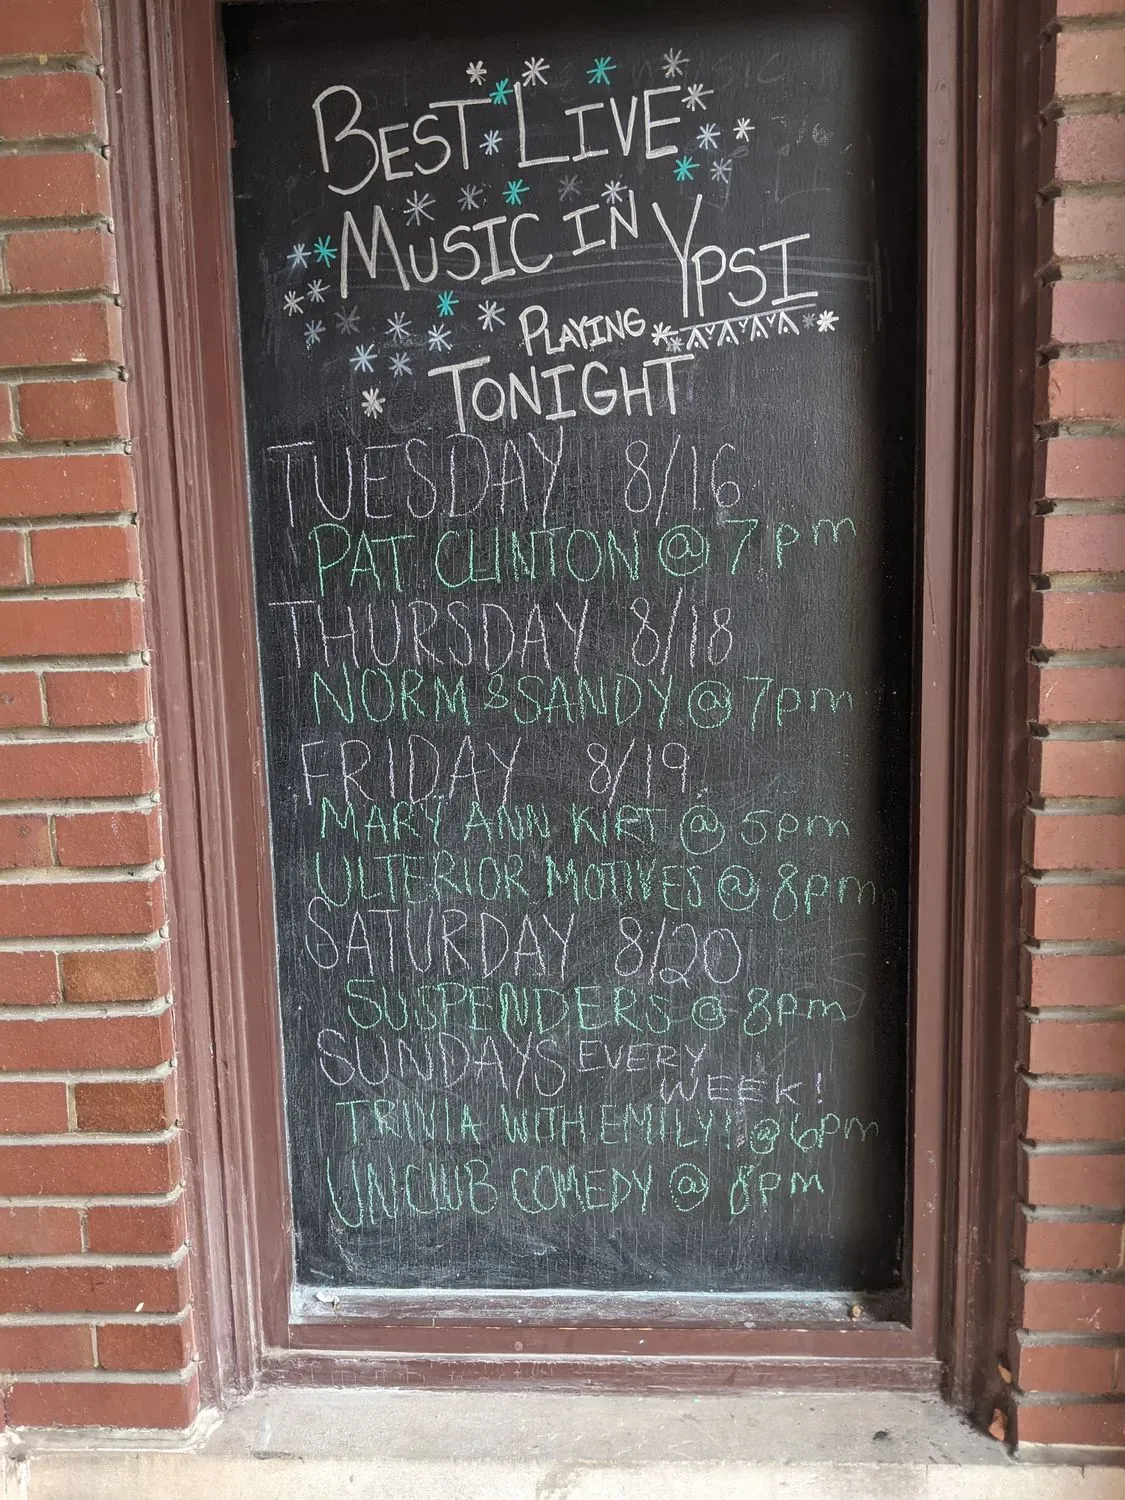 BEST LIVE
MUSIC IN YPSI
PLAYING
TONIGHT
TUESDAY 8/16
PAT CLINTON @ 7pm
THURSDAY 8/18
NORM & SANDY @ 7pm
FRIDAY 8/19
MARY ANN KIRT @ 5pm
ULTERIOR MOTIVES @ 8pm
SATURDAY 8/20
SUSPENDERS @ 8pm
SUNDAYS EVERY
WEEK!
TRIVIA WITH EMILY! @ 6pm
UNCLUB COMEDY @ 8pm